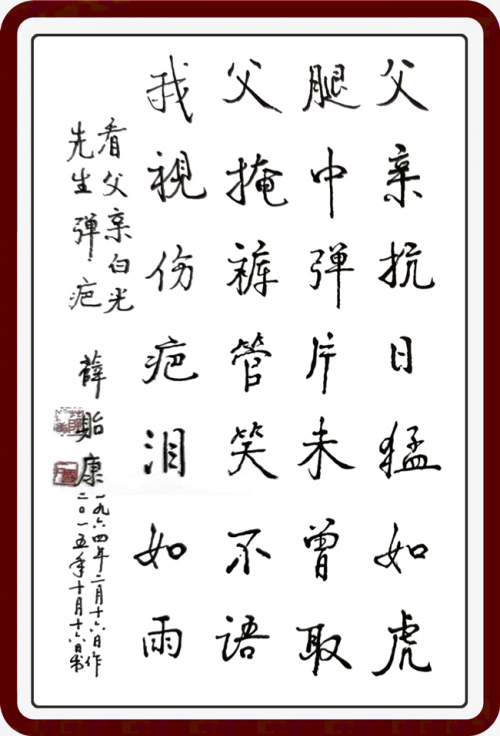 父亲抗日猛如虎
腿中弹片未曾取
父掩裤管笑不语
我視伤疤泪如雨
看父亲白光
先生弹疤
薛贻康
一九六四年二月十六日作
二〇一五年十月十六日书